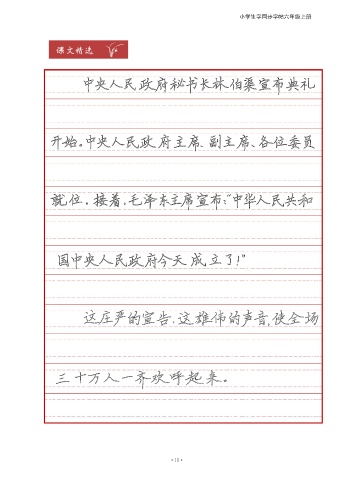 小学生字同步字帖六年级上册
课文精选
中央人民政府秘书长林伯渠宣布典礼
开始。中央人民政府主席、副主席、各位委员
就位。接着，毛泽东主席宣布：“中华人民共和
国中央人民政府今天成立了！”
这庄严的宣告，这雄伟的声音，使全场
三十万人一齐欢呼起来。